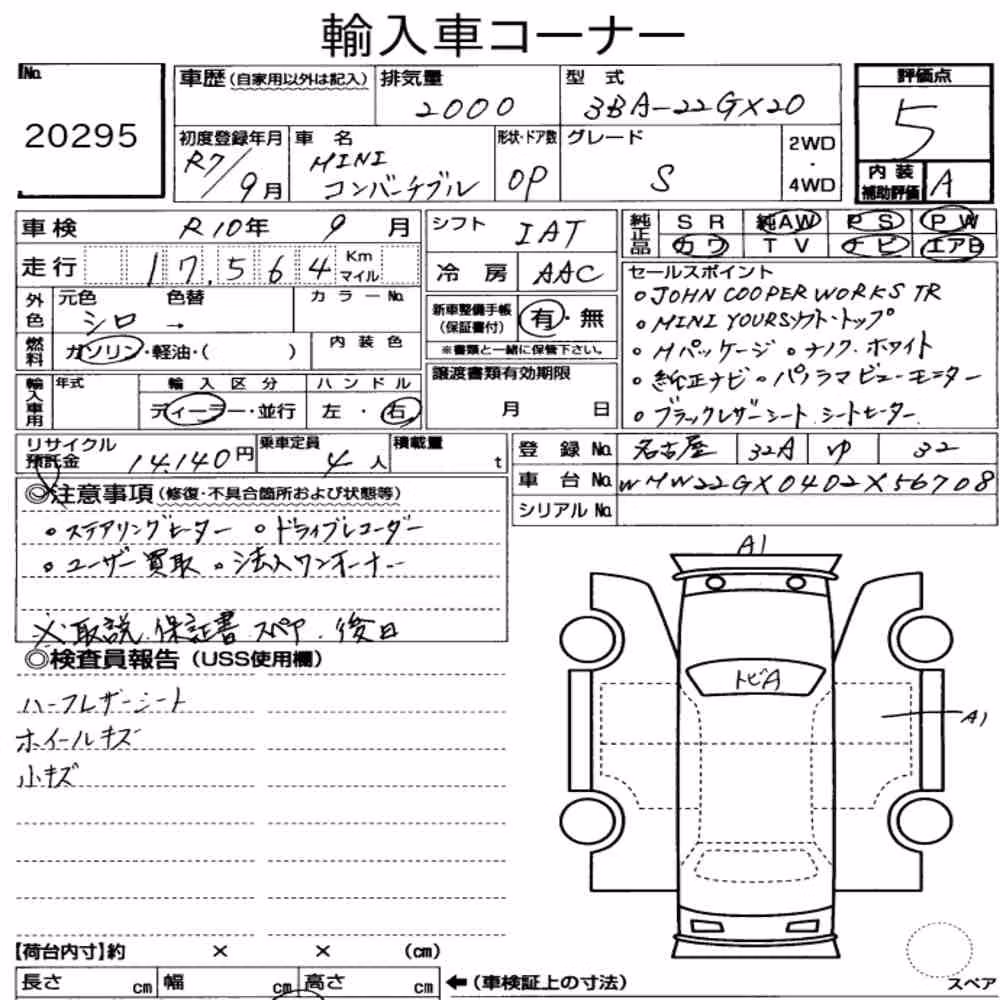 輸入車コーナー
No. 20295
車歴(自家用以外は記入) 排気量 2000 型式 3BA-22GX20 評価点 5
初度登録年月 R7/9月 車名 MINI コンバーチブル 形状・ドア数 OP グレード S 2WD・4WD
内装補助評価 A
車検 R10年 9月 シフト IAT 純正品 SR 純AW PS PW
カワ TV ナビ エアB
走行 17,564 Km マイル 冷房 AAC
セールスポイント
外色 元色 シロ 色替 → カラーNo.
新車整備手帳(保証書付) 有・無
※書類と一緒に保管下さい。
燃料 ガソリン・軽油・( ) 内装色
○JOHN COOPER WORKS TR
○MINI YOURSソフト・トップ
○Mパッケージ ○ナノク・ホワイト
○純正ナビ ○パノラマビューモニター
○ブラックレザーシート シートヒーター
輸入車用 年式 輸入区分 ディーラー・並行 ハンドル 左・右
譲渡書類有効期限 月 日
リサイクル預託金 14,140円 乗車定員 4人 積載量 t
登録No. 名古屋 32A ゆ 32
車台No. WMW22GX0402X56708
シリアルNo.
◎注意事項(修復・不具合箇所および状態等)
○ステアリングヒーター ○ドライブレコーダー
○ユーザー買取 ○法人ワンオーナー
※取説、保証書、スペア、後日
◎検査員報告(USS使用欄)
ハーフレザーシート
ホイールキズ
小キズ
A1
トビA
A1
【荷台内寸】約 × × (cm)
長さ cm 幅 cm 高さ cm ←(車検証上の寸法)
スペア